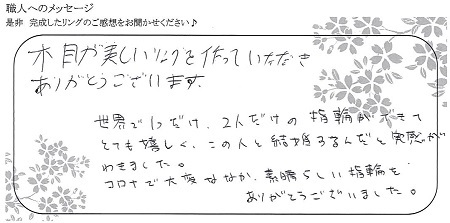 職人へのメッセージ
是非 完成したリングのご感想をお聞かせください♪
木目が美しいリングを作っていただき
ありがとうございます.
世界で1つだけ、2人だけの指輪ができて
とても嬉しく、この人と結婚するんだと実感が
わきました。
コロナで大変ななか、素晴らしい指輪を
ありがとうございました。